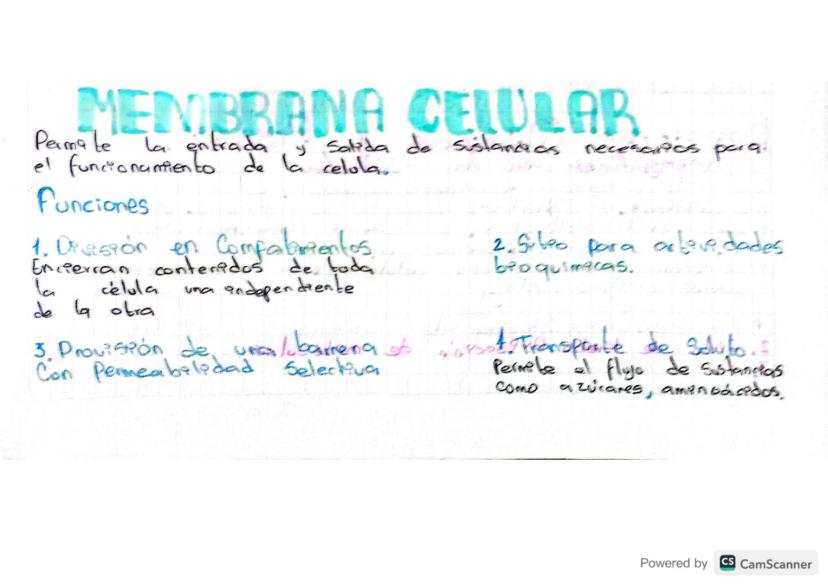 MEMBRANA CELULAR
Permite la entrada y salida de sustancias necesarias para
el funcionamiento de la celula.
Funciones
1. División en Compatimentos
Encierran contenidos de toda
la célula una independiente
de la otra
2. Sitio para actividades
bioquimicas.
3. Provisión de una barrena
Con Permeabilidad Selectiva
4. Transporte de Soluto.
Permite el flujo de Sustancias
como azúcares, aminoácidos.
Powered by CS CamScanner